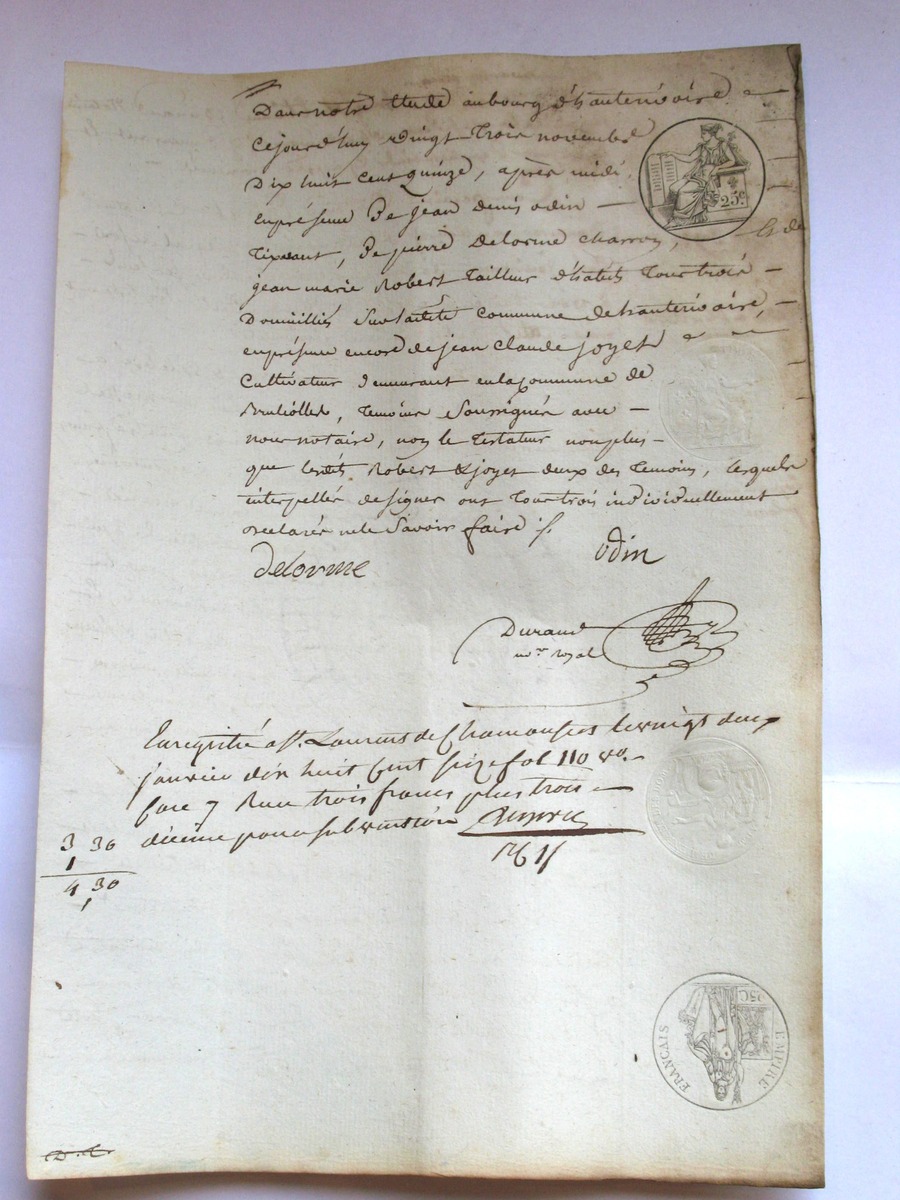 Dans notre Etude au bourg d'hauterivoire
Cejourd'huy Vingt Trois novembre
Dix huit Cent quinze, après midi,
En présence De jean denis odin
Tixerant, De pierre Delorme Charron, & de
jean marie Robert Tailleur d'habits Tous trois
Domiciliés Sur ladite Commune de hauterivoire,
en présence encore de jean Claude joyet
Cultivateur demeurant en la Commune de
Brulliolles, Temoins Soussignés avec
nous notaire, non le Testateur non plus
que lesdits Robert & joyet deux des Temoins, lesquels
interpellés de signer ont Tous trois individuellement
declarés ne le Savoir faire
delorme odin
Durand
nore Royal
25c
Enregistré a St. Laurent de Chamousset le vingt deux
janvier dix huit Cent seize fol 110 vo.
Case 7 Recu trois francs plus trois
décime pour subvention
3 30
1
4,30
EMPIRE
FRANCAIS
25C